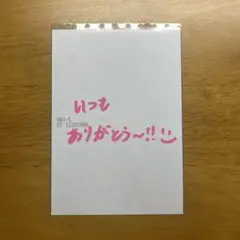 いつも
ありがとう〜!!